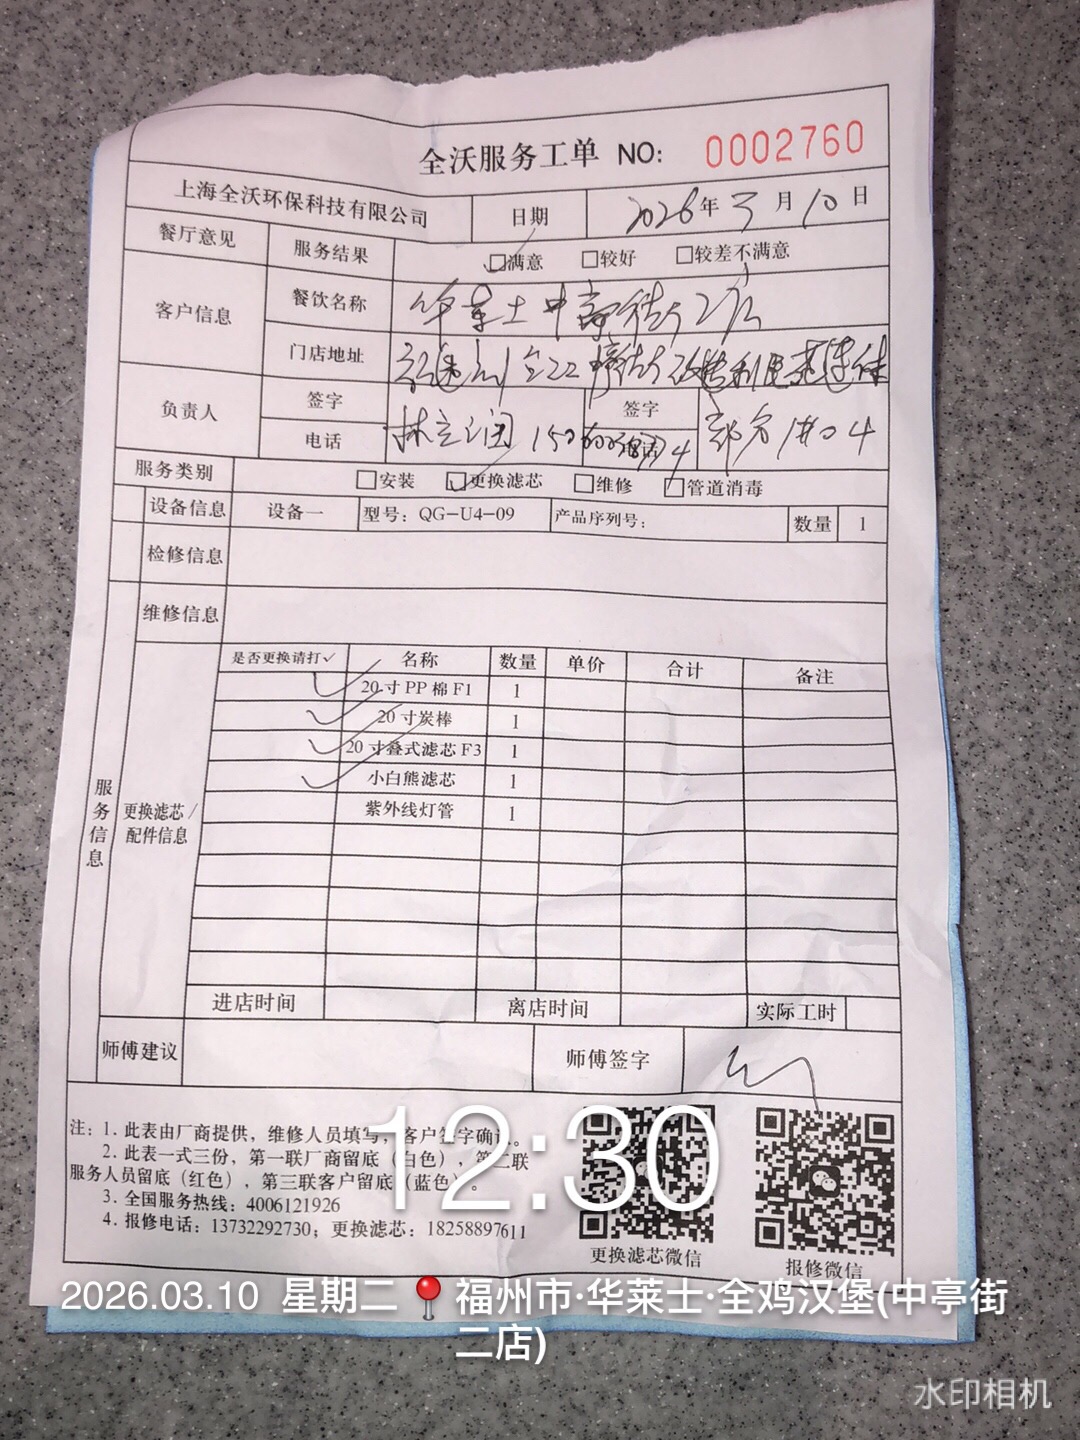 全沃服务工单 NO: 0002760
上海全沃环保科技有限公司 日期 2026年3月10日
餐厅意见 服务结果 □满意 □较好 □较差不满意
客户信息 餐饮名称 华莱士中亭街2店
门店地址
负责人 签字 签字
电话 电话
服务类别 □安装 □更换滤芯 □维修 □管道消毒
设备信息 设备一 型号：QG-U4-09 产品序列号： 数量 1
检修信息
维修信息
服务信息
更换滤芯/配件信息
是否更换请打✓ 名称 数量 单价 合计 备注
✓ 20寸PP棉F1 1
✓ 20寸炭棒 1
✓ 20寸叠式滤芯F3 1
✓ 小白熊滤芯 1
紫外线灯管 1
进店时间 离店时间 实际工时
师傅建议 师傅签字
注：1. 此表由厂商提供，维修人员填写，客户签字确认。
2. 此表一式三份，第一联厂商留底（白色），第二联
服务人员留底（红色），第三联客户留底（蓝色）。
3. 全国服务热线：4006121926
4. 报修电话：13732292730；更换滤芯：18258897611
更换滤芯微信 报修微信
12:30
2026.03.10 星期二 福州市·华莱士·全鸡汉堡(中亭街
二店)
水印相机